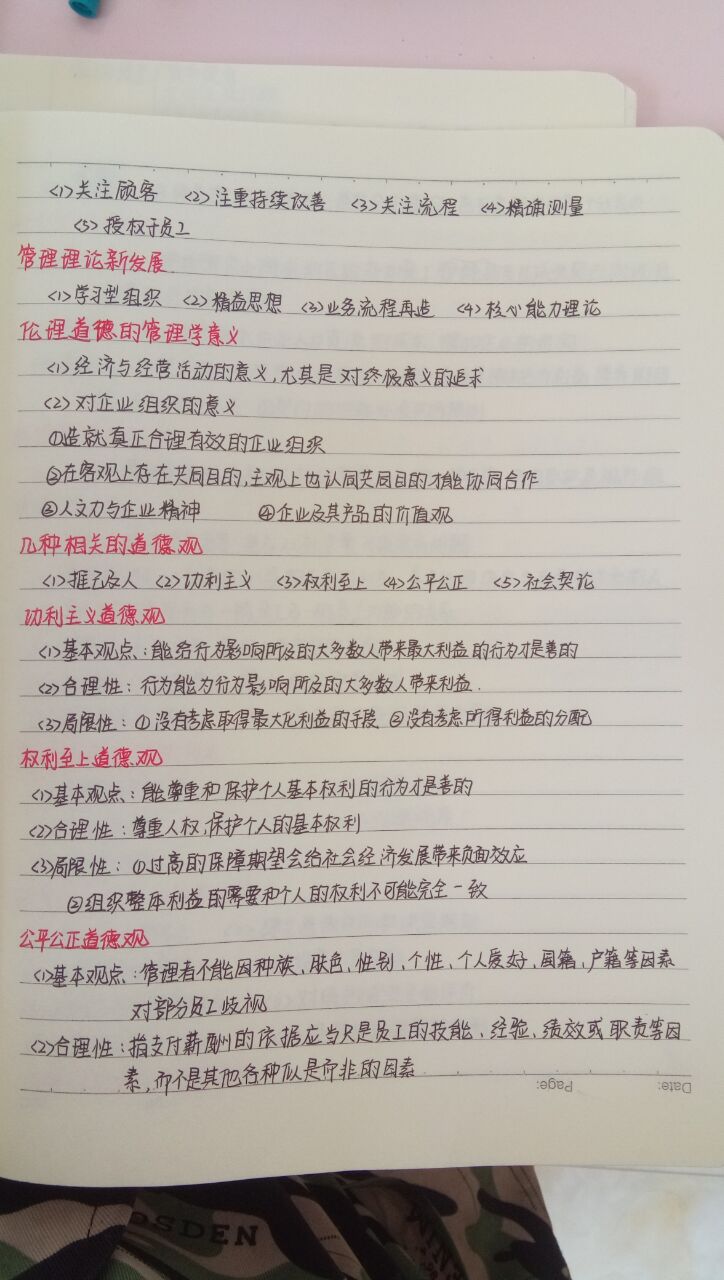 <1>关注顾客 <2>注重持续改善 <3>关注流程 <4>精确测量
<5>授权于员工
管理理论新发展
<1>学习型组织 <2>精益思想 <3>业务流程再造 <4>核心能力理论
伦理道德的管理学意义
<1>经济与经营活动的意义,尤其是对终极意义的追求
<2>对企业组织的意义
①造就真正合理有效的企业组织
②在客观上存在共同目的,主观上也认同共同目的才能协同合作
③人文力与企业精神 ④企业及其产品的价值观
几种相关的道德观
<1>推己及人 <2>功利主义 <3>权利至上 <4>公平公正 <5>社会契论
功利主义道德观
<1>基本观点:能给行为影响所及的大多数人带来最大利益的行为才是善的
<2>合理性:行为能为行为影响所及的大多数人带来利益.
<3>局限性:①没有考虑取得最大化利益的手段 ②没有考虑所得利益的分配
权利至上道德观
<1>基本观点:能尊重和保护个人基本权利的行为才是善的
<2>合理性:尊重人权,保护个人的基本权利
<3>局限性:①过高的保障期望会给社会经济发展带来负面效应
②组织整体利益的需要和个人的权利不可能完全一致
公平公正道德观
<1>基本观点:管理者不能因种族、肤色、性别、个性、个人爱好、国籍、户籍等因素
对部分员工歧视
<2>合理性:指支付薪酬的依据应当只是员工的技能、经验、绩效或职责等因
素,而不是其他各种似是而非的因素
Date: Page:
OSDEN